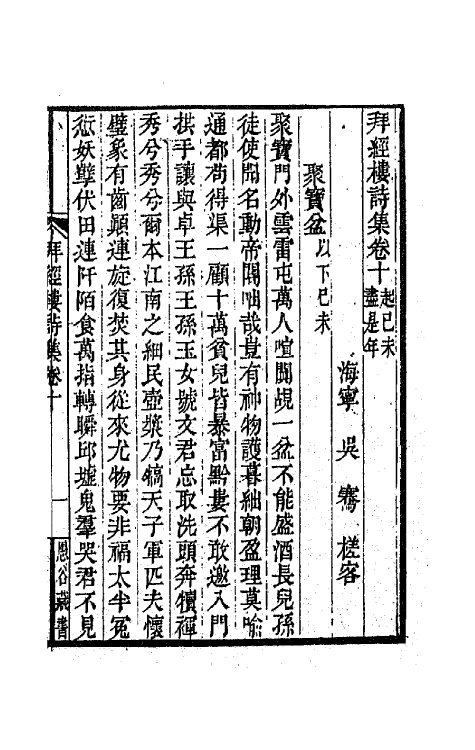 拜經樓詩集卷十起己未盡是年
海寧 吳 騫 槎客
聚寶盆以下己未
聚寶門外雲雷屯萬人喧闐覘一盆不能盛酒長兒孫
徒使聞名動帝閽咄哉豈有神物護暮絀朝盈理莫喻
通都苟得渠一顧十萬貧兒皆暴富黔婁不敢邀入門
拱手讓與卓王孫王孫玉女號文君忘取洗頭奔犢褌
秀兮秀兮爾本江南之細民壺漿乃犒天子軍匹夫懷
璧象有齒顛連旋復焚其身從來尤物要非福太半冤
愆妖孽伏田連阡陌食萬指轉瞬邱墟鬼羣哭君不見
拜經樓詩集卷十
一
愚谷叢書